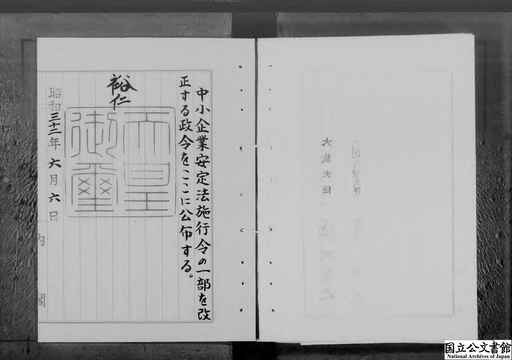 中小企業安定法施行令の一部を改
正する政令をここに公布する。
裕仁
天皇
御璽
昭和三十二年六月六日
内閣
大蔵大臣
国立公文書館
National Archives of Japan